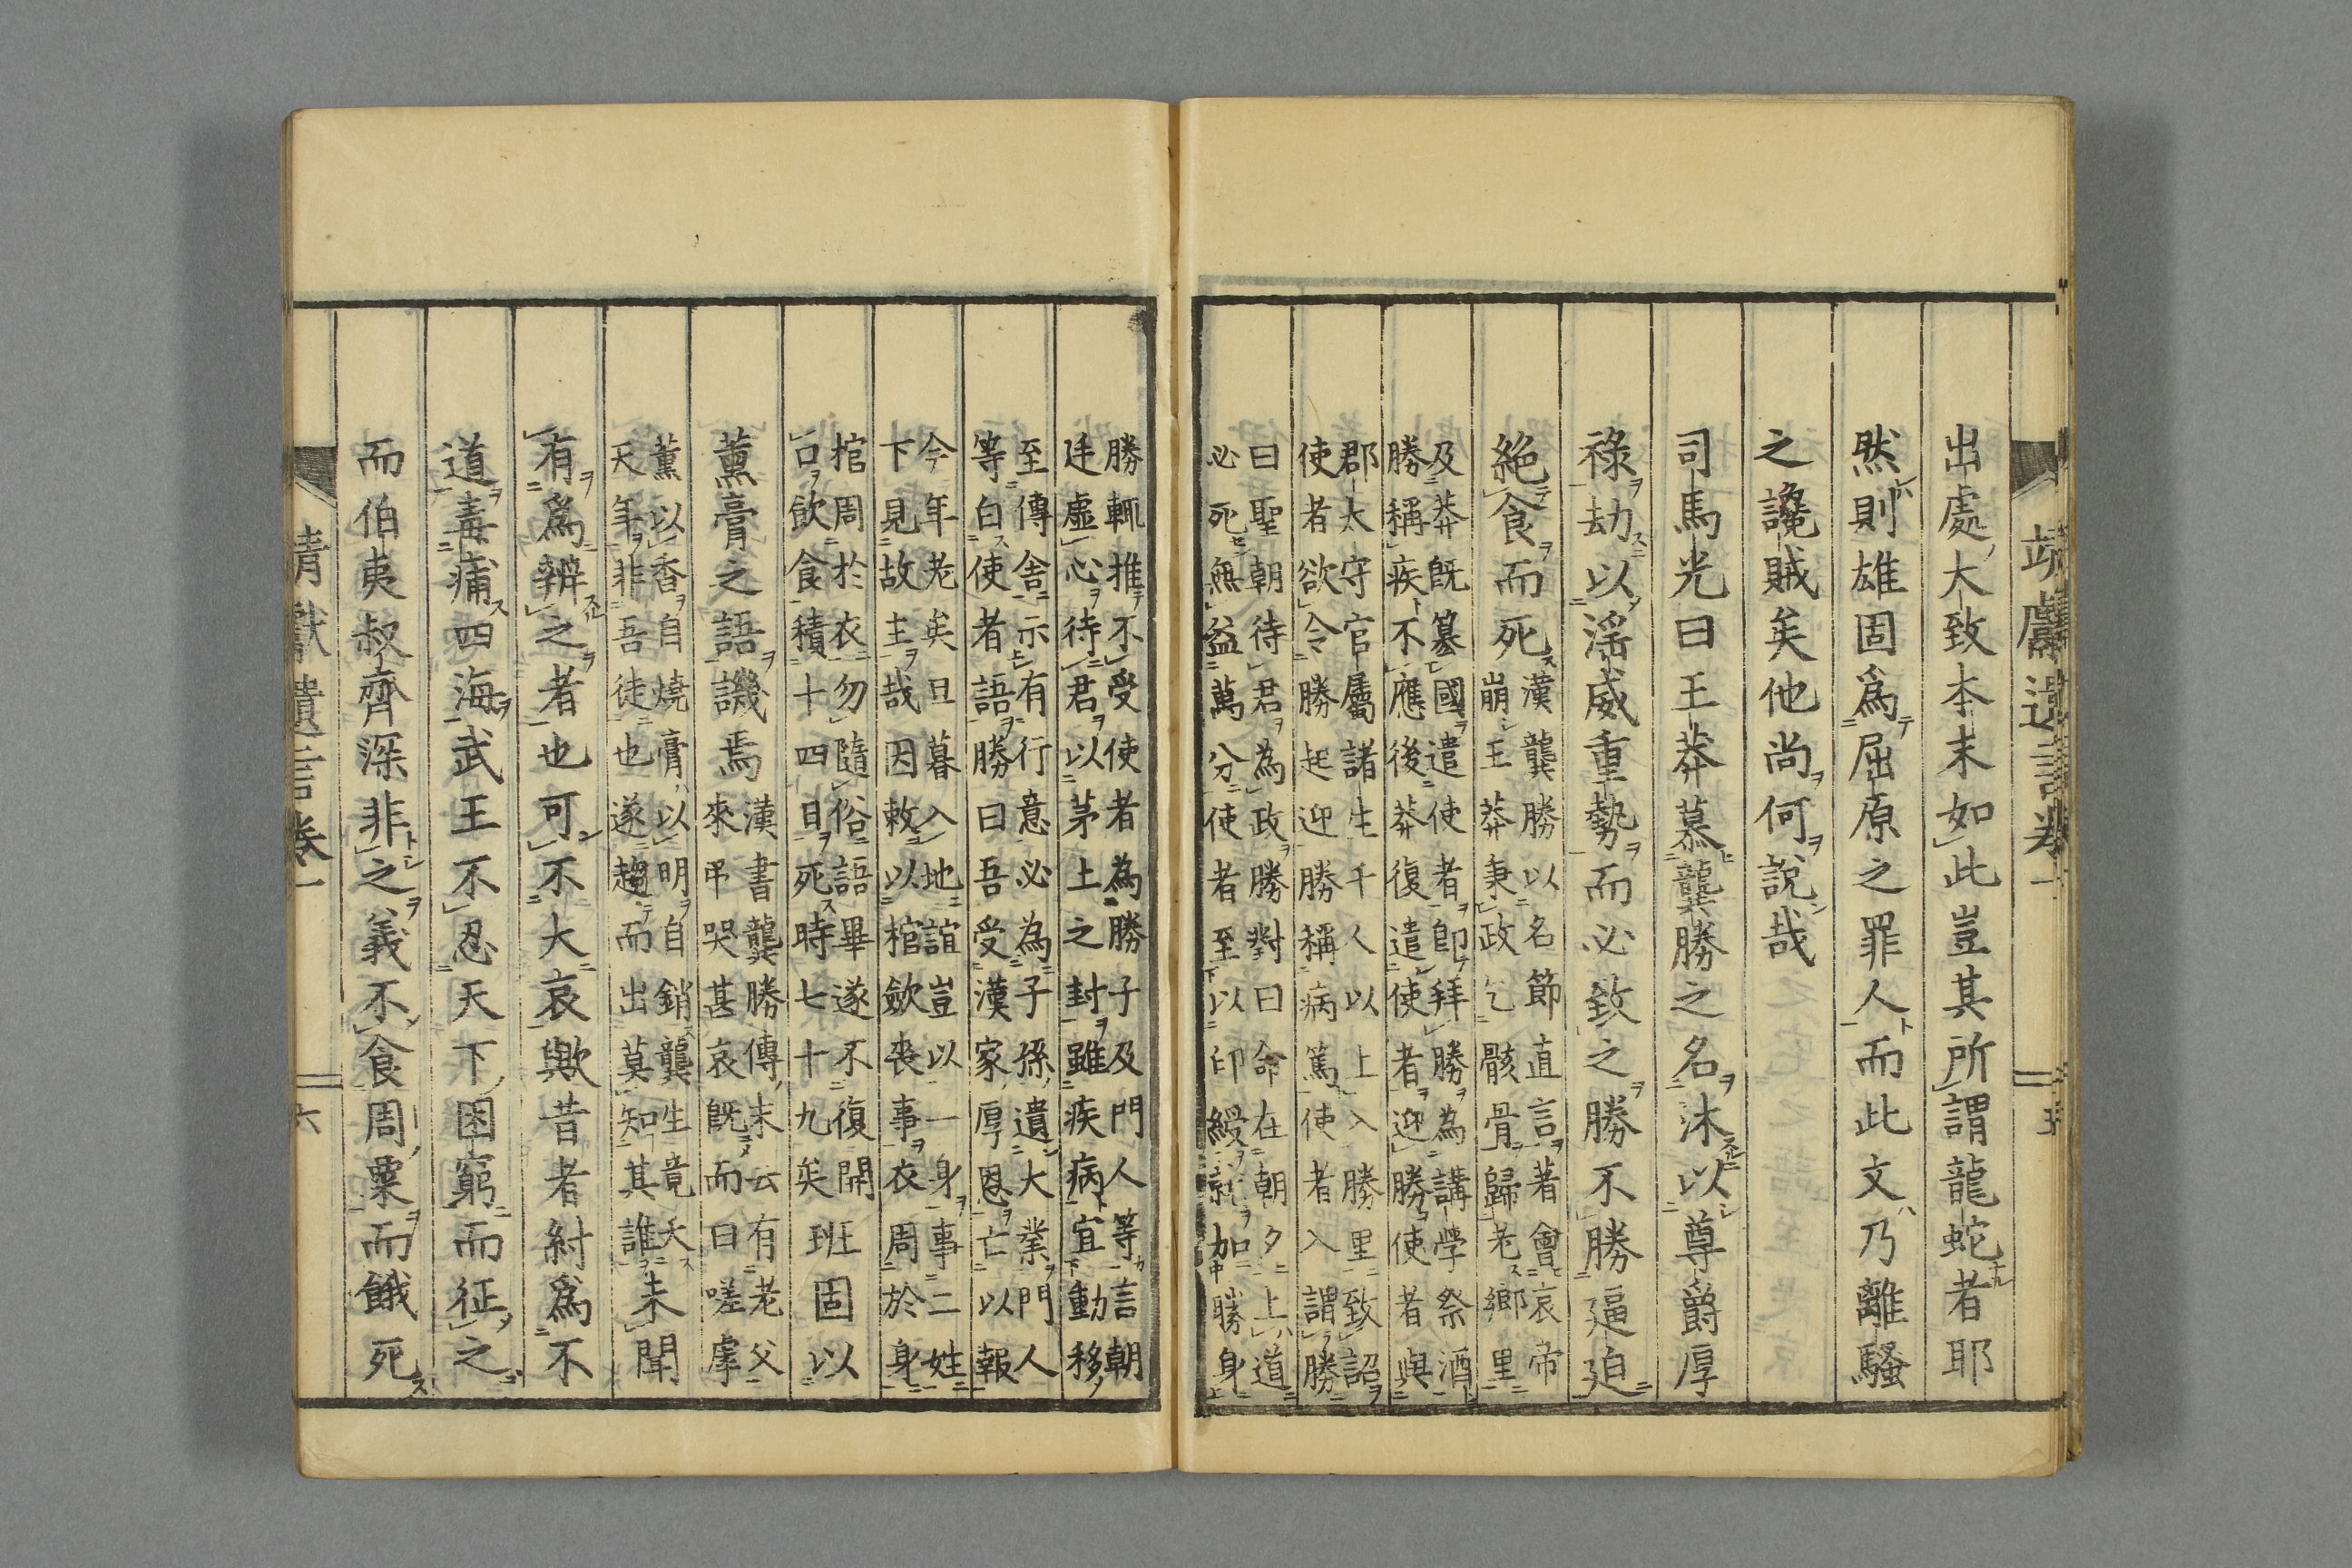 靖獻遺言卷一 五
出處大致本末如此豈其所謂龍蛇者耶
然則雄固爲屈原之罪人而此文乃離騷
之讒賊矣他尚何說哉
司馬光曰王莽慕龔勝之名沐以尊爵厚
祿劫以淫威重勢而必致之勝不勝逼迫
絕食而死
漢龔勝以名節直言著會哀帝
崩王莽秉政乞骸骨歸老鄉里
及莽旣篡國遣使者卽拜勝為講學祭酒
勝稱疾不應後莽復遣使者迎勝使者與
郡太守官屬諸生千人以上入勝里致詔
使者欲令勝起迎勝稱病篤使者入謂勝
曰聖朝待君為政勝對曰命在朝夕上道
必死無益萬分使者至以印綬就加勝身
勝輒推不受使者為勝子及門人等言朝
廷虛心待君以茅土之封雖疾病宜動移
至傳舍示有行意必為子孫遺大業門人
等白使者語勝曰吾受漢家厚恩亡以報
今年老矣旦暮入地誼豈以一身事二姓
下見故主哉因敕以棺斂喪事衣周於身
棺周於衣勿隨俗語畢遂不復開
口飲食積十四日死時七十九矣
班固以
薰膏之語譏焉
漢書龔勝傳末云有老父
來弔哭甚哀旣而曰嗟虖
薰以香自燒膏以明自銷龔生竟夭
天年非吾徒也遂趨而出莫知其誰
未聞
有爲辨之者也可不大哀歟昔者紂爲不
道毒痡四海武王不忍天下困窮而征之
而伯夷叔齊深非之義不食周粟而餓死
靖獻遺言卷一 六